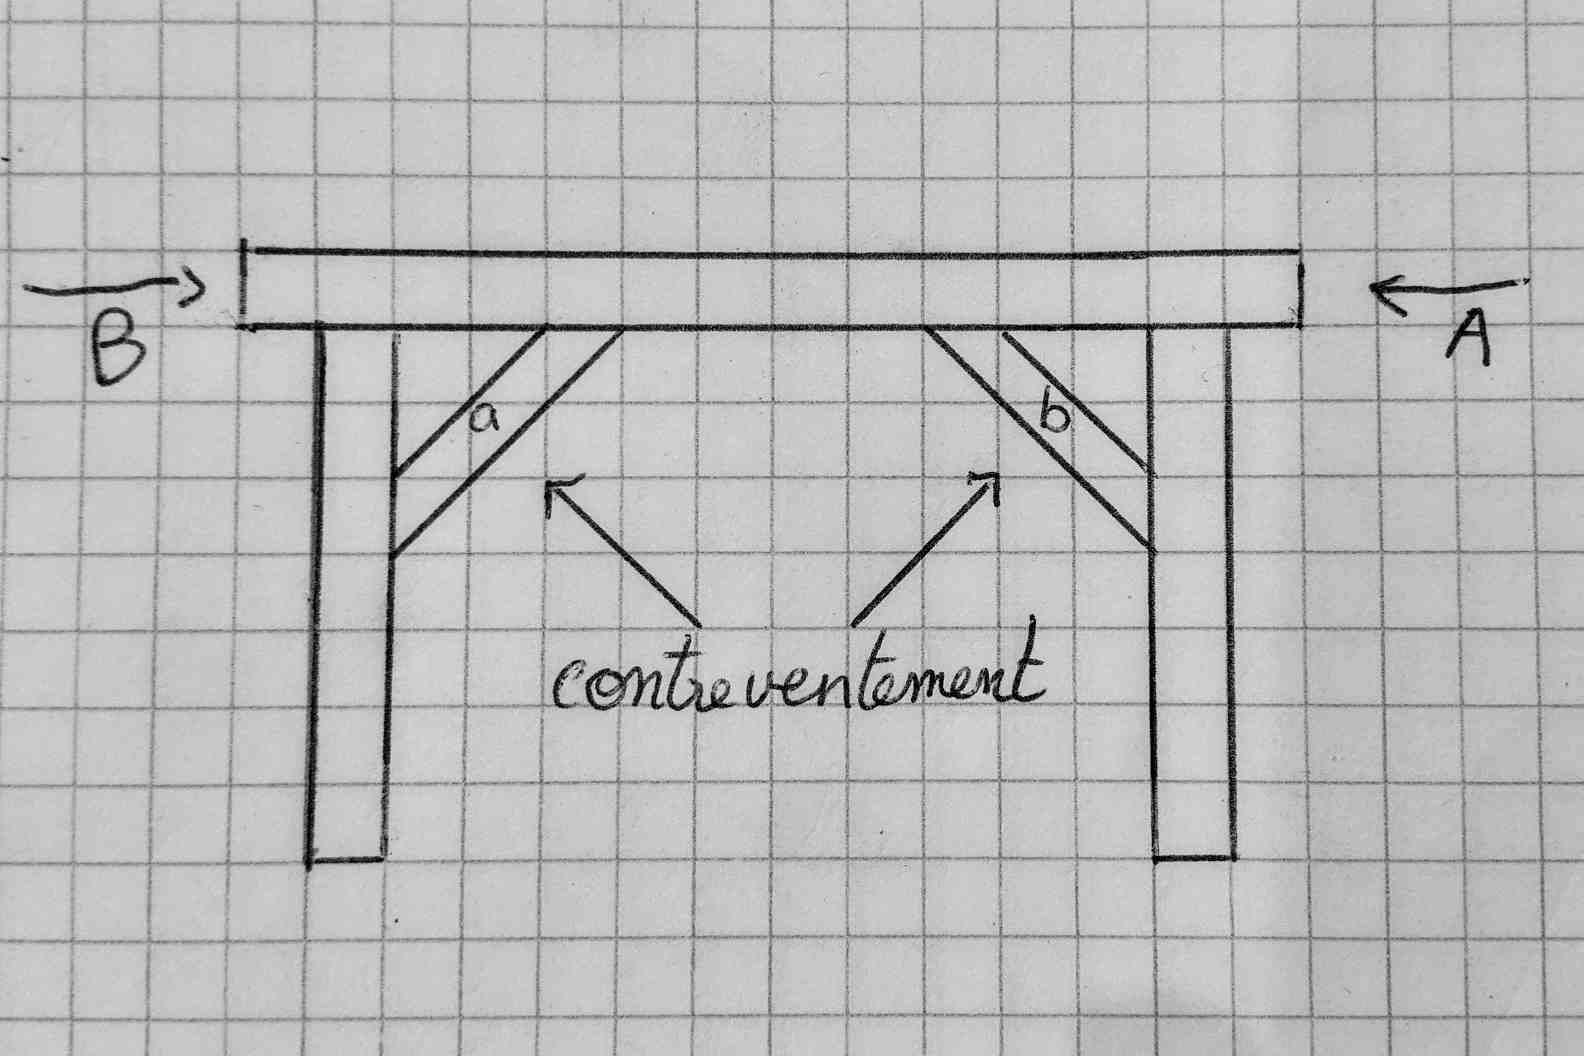 B
A
a
b
contreventement